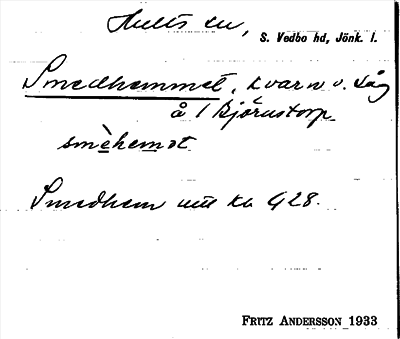 Hults sn,
S. Vedbo hd, Jönk. l.
Smedhemmet, kvarn o. såg
å 1 Björnstorp
smèhemət
Smedhem utt ka G 28.
FRITZ ANDERSSON 1933